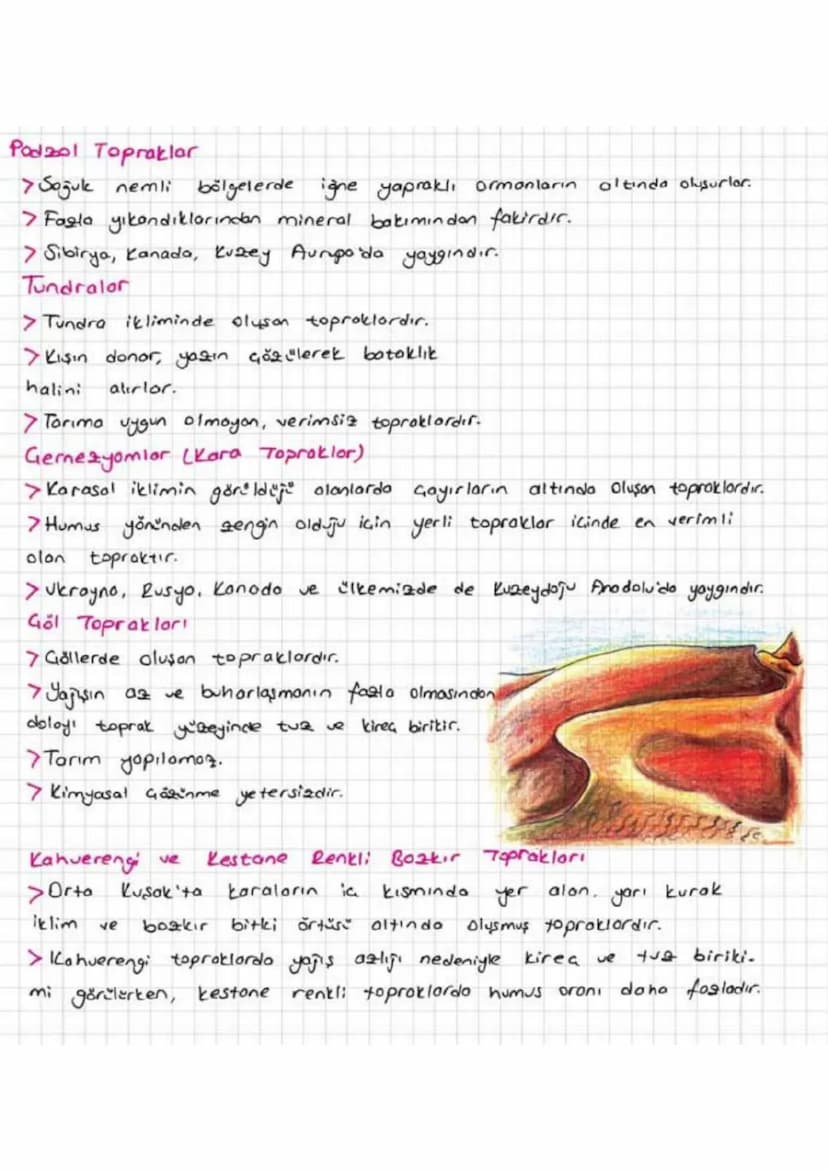 Podzol Topraklar
> Soğuk nemli bölgelerde iğne yapraklı ormanların altında oluşurlar.
> Fazla yıkandıklarından mineral bakımından fakirdir.
> Sibirya, Kanada, Kuzey Avrupa'da yaygındır.
Tundralar
> Tundra ikliminde oluşan topraklardır.
> Kışın donar, yazın çözülerek bataklık
halini alırlar.
> Tarıma uygun olmayan, verimsiz topraklardır.
Çernezyomlar (Kara Topraklar)
> Karasal iklimin görüldüğü alanlarda çayırların altında oluşan topraklardır.
> Humus yönünden zengin olduğu için yerli topraklar içinde en verimli
olan topraktır.
> Ukrayna, Rusya, Kanada ve ülkemizde de Kuzeydoğu Anadolu'da yaygındır.
Göl Toprakları
> Göllerde oluşan topraklardır.
> Yağışın az ve buharlaşmanın fazla olmasından
dolayı toprak yüzeyinde tuz ve kireç birikir.
> Tarım yapılamaz.
> Kimyasal çözünme yetersizdir.
Kahverengi ve Kestane Renkli Bozkır Toprakları
> Orta Kuşak'ta karaların iç kısmında yer alan, yarı kurak
iklim ve bozkır bitki örtüsü altında oluşmuş topraklardır.
> Kahverengi topraklarda yağış azlığı nedeniyle kireç ve tuz biriki-
mi görülürken, kestane renkli topraklarda humus oranı daha fazladır.